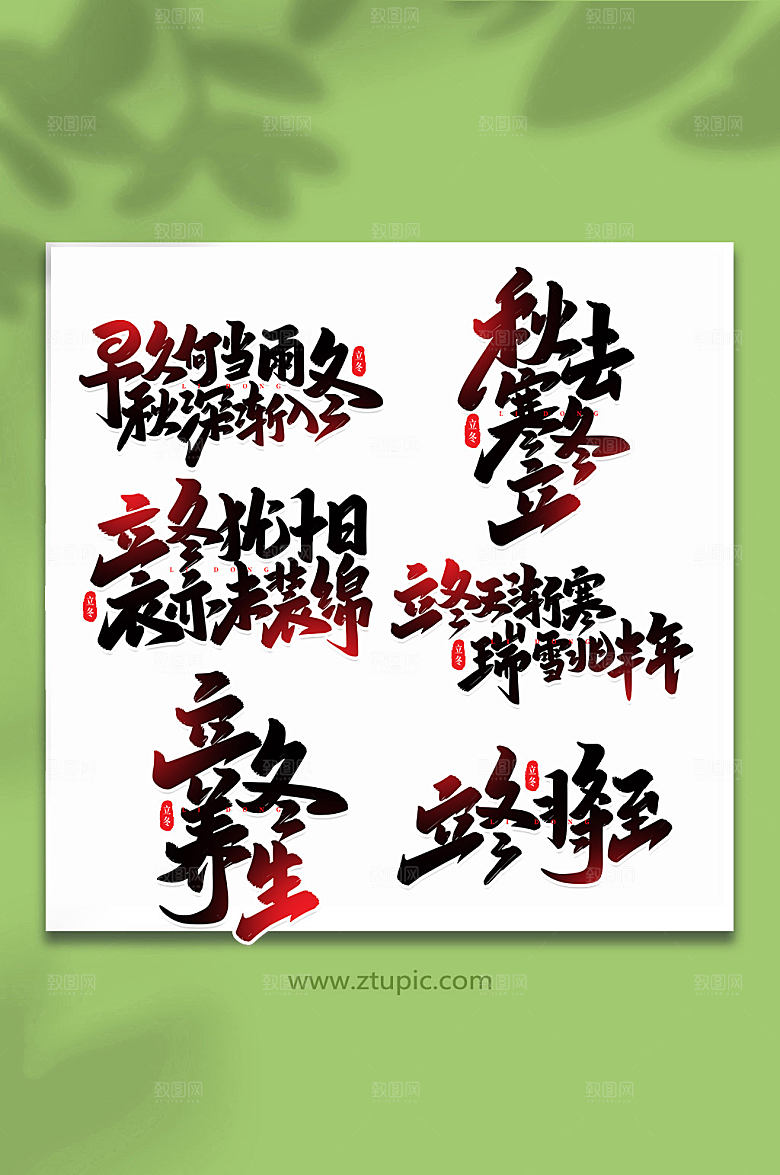 早久何当雨
秋深渐入冬
立冬
LI DONG
秋去
寒冬
立
立冬
LI DONG
立冬犹十日
衣亦未装绵
立冬
LI DONG
立冬天渐寒
瑞雪兆丰年
立冬
立冬
养生
立冬
LI DONG
立冬将至
立冬
LI DONG
www.ztupic.com
致图网